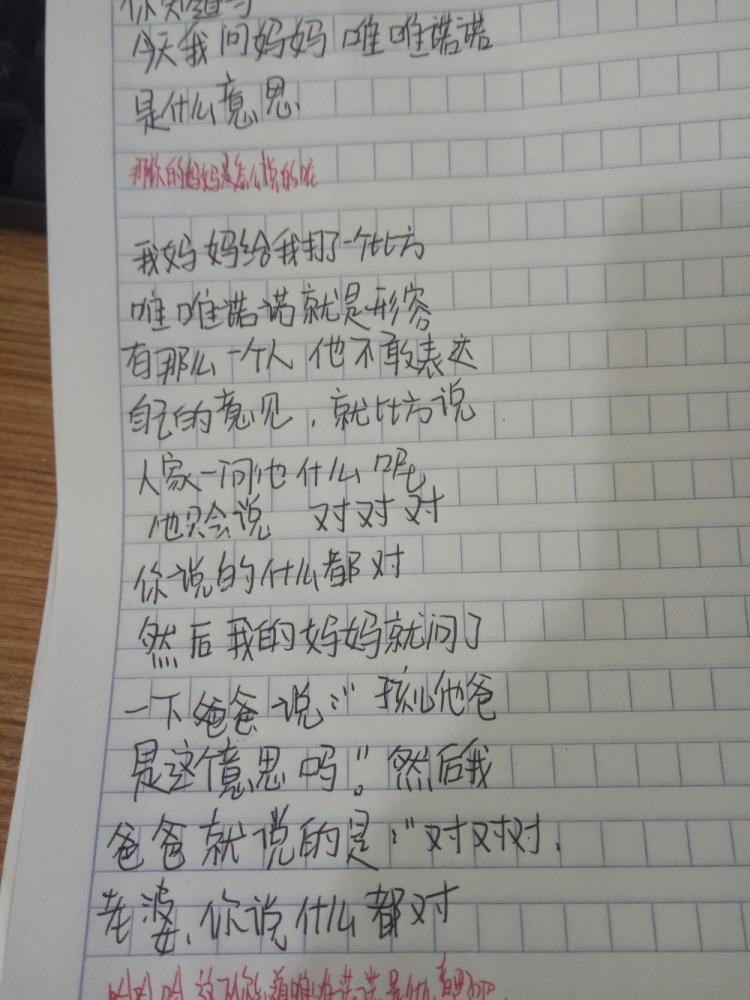 你知道吗
今天我问妈妈 唯唯诺诺
是什么意思、
那你的妈妈是怎么说的呢
我妈妈给我打了一个比方
唯唯诺诺就是形容
有那么一个人 他不敢表达
自己的意见，就比方说
人家一问他什么呢
他只会说 对对对
你说的什么都对
然后我的妈妈就问了
一下爸爸说：“孩儿他爸
是这个意思吗”。然后我
爸爸就说的是：“对对对、
老婆、你说什么都对
哈哈哈 这下你知道唯唯诺诺是什么意思了吧